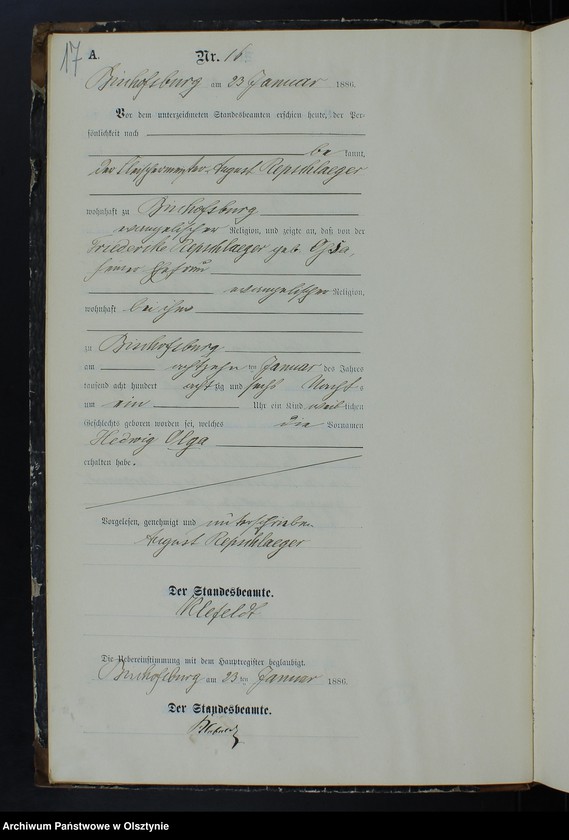 17
A. Nr. 16
Bischofsburg am 23 Januar 1886.
Vor dem unterzeichneten Standesbeamten erschien heute, der Per-
sönlichkeit nach
be kannt,
der August Repschlaeger
wohnhaft zu Bischofsburg
evangelischer Religion, und zeigte an, daß von der
Friederike Repschlaeger geb.
seiner Ehefrau
evangelischer Religion,
wohnhaft bei ihm
zu Bischofsburg
am achtzehn ten Januar des Jahres
tausend acht hundert acht zig und sechs Nachts
um ein Uhr ein Kind weib lichen
Geschlechts geboren worden sei, welches die Vornamen
Hedwig Olga
erhalten habe.
Vorgelesen, genehmigt und unterschrieben
August Repschlaeger
Der Standesbeamte.
Klefeldt
Die Uebereinstimmung mit dem Hauptregister beglaubigt.
Bischofsburg am 23 ten Januar 1886.
Der Standesbeamte.
Archiwum Państwowe w Olsztynie